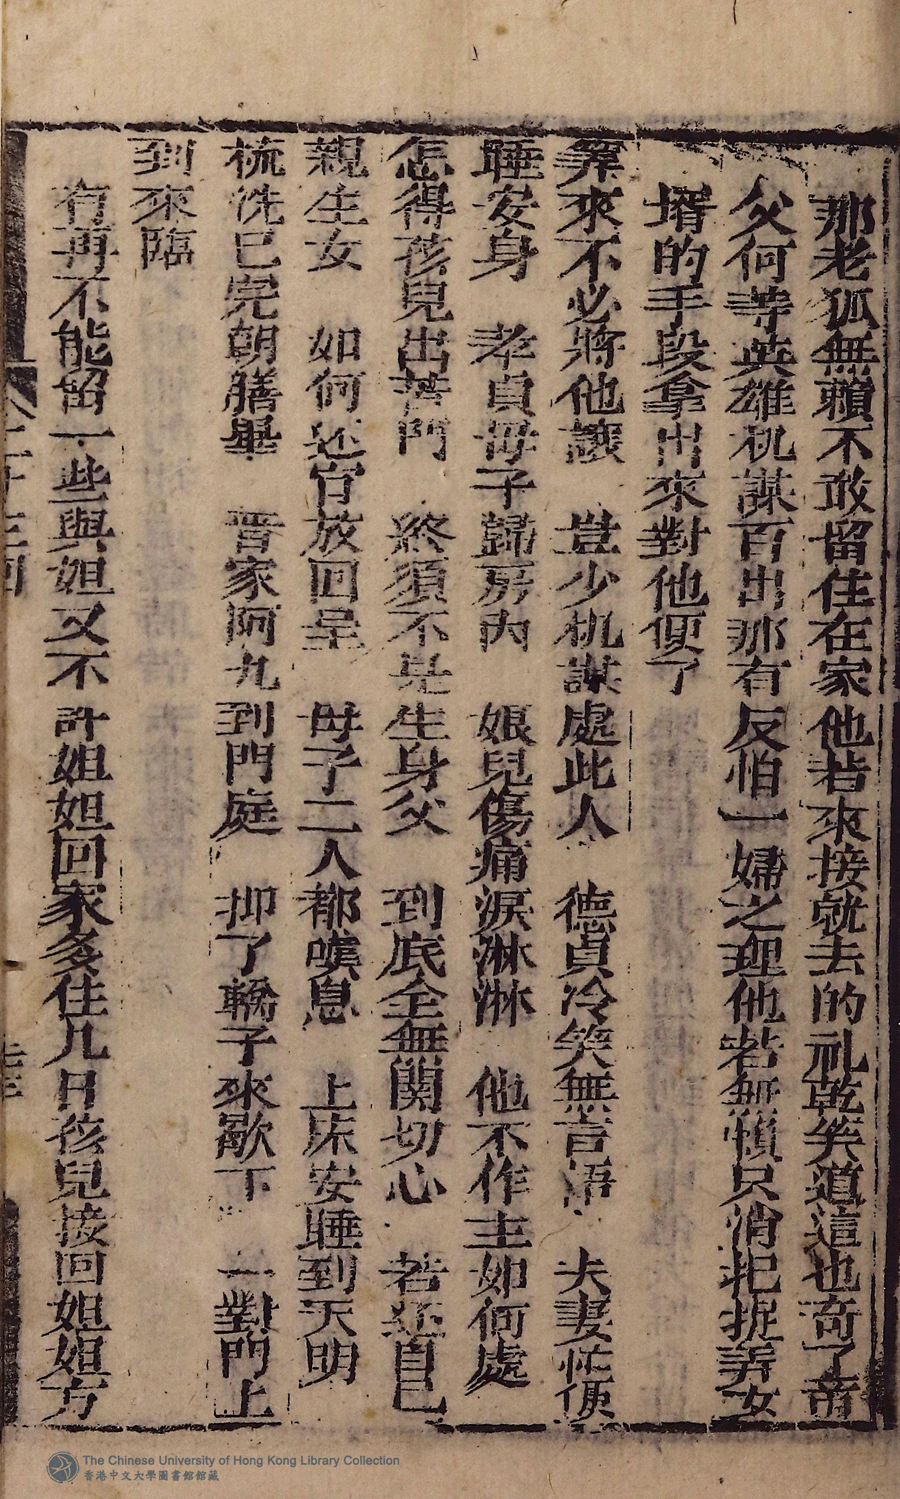 那老狐無賴不敢留住在家他若來接就去的礼乾笑道這也奇了帝
父何等英雄机謀百出那有反怕一婦之理他若無懶只消把捉弄女
壻的手段拿出來對他便了
算來不必將他讓　豈少机謀處此人　德貞冷笑無言語　夫妻忙便
睡安身　孝貞母子歸房內　娘兒傷痛淚淋淋　他不作主如何處
怎得孩兒出苦門　終須不是生身父　到底全無関切心　若还自已
親生女　如何还官放回呈　母子二人都嘆息　上床安睡到天明
梳洗已完朝膳畢　晋家阿九到門庭　抑了轎子來歇下　一對門上
到來臨
有再不能留一些與妲又不許姐妲回家多住几日孩兒接回妲妲方
二十三回
The Chinese University of Hong Kong Library Collection
香港中文大學圖書館館藏